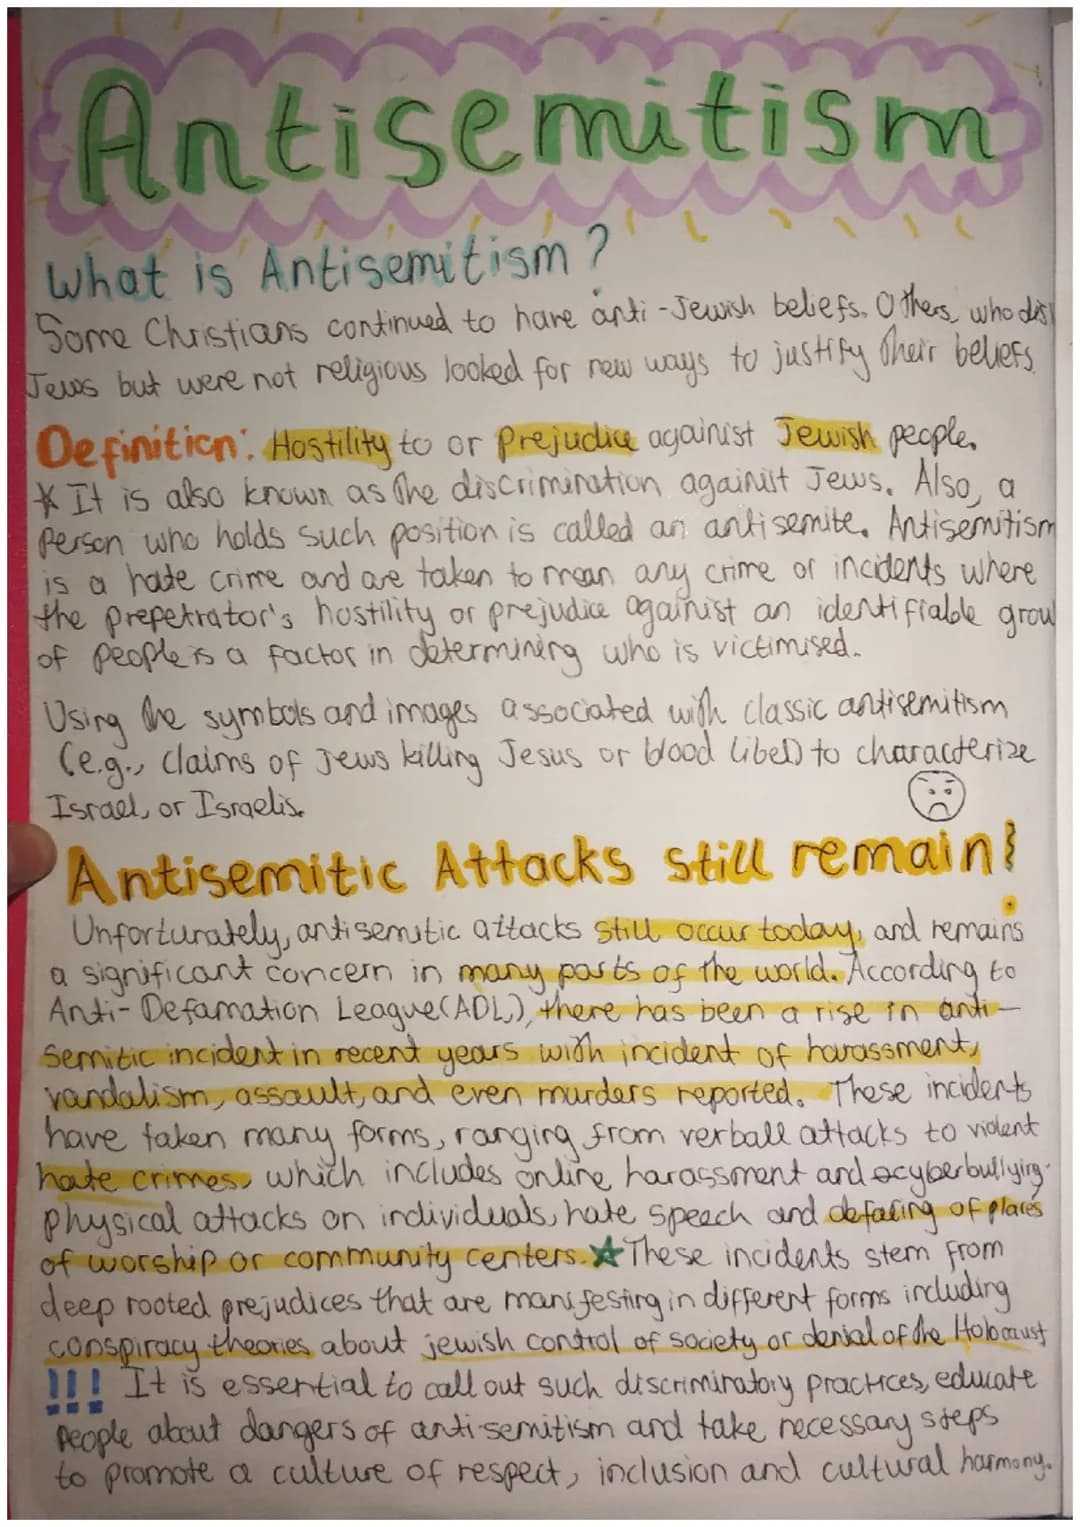 Antisemitism
What is Antisemitism?
Some Christians continued to have anti-Jewish beliefs. Others who disl
Jews but were not religious looked for new ways to justify their beliefs.
Definition: Hostility to or Prejudice againist Jewish people.
* It is also known as the discrimination againist Jews. Also, a
Person who holds such position is called an antisemite. Antisemitism
is a hate crime and are taken to mean any crime or incidents where
the prepetrator's hostility or prejudice againist an identifiable grou
of people is a factor in determining who is victimised.
Using the symbols and images associated with classic antisemitism
(e.g., claims of Jews killing Jesus or blood libel) to characterize
Israel, or Israelis.
Antisemitic Attacks still remain!
Unfortunately, antisemitic attacks still occur today, and remains
a significant concern in many parts of the world. According to
Anti-Defamation League(ADL), there has been a rise in anti-
semitic incident in recent years with incident of harassment,
vandalism, assault, and even murders reported. These incidents
have taken many forms, ranging from verball attacks to violent
hate crimes, which includes online harassment and cyberbullying.
physical attacks on individuals, hate speech and defacing of places
of worship or community centers. These incidents stem from
deep rooted prejudices that are manifesting in different forms including
conspiracy theories about jewish control of society or denial of the Holocaust
!!! It is essential to call out such discriminatory practices, educate
People about dangers of anti-semitism and take necessary steps
to promote a culture of respect, inclusion and cultural harmony.